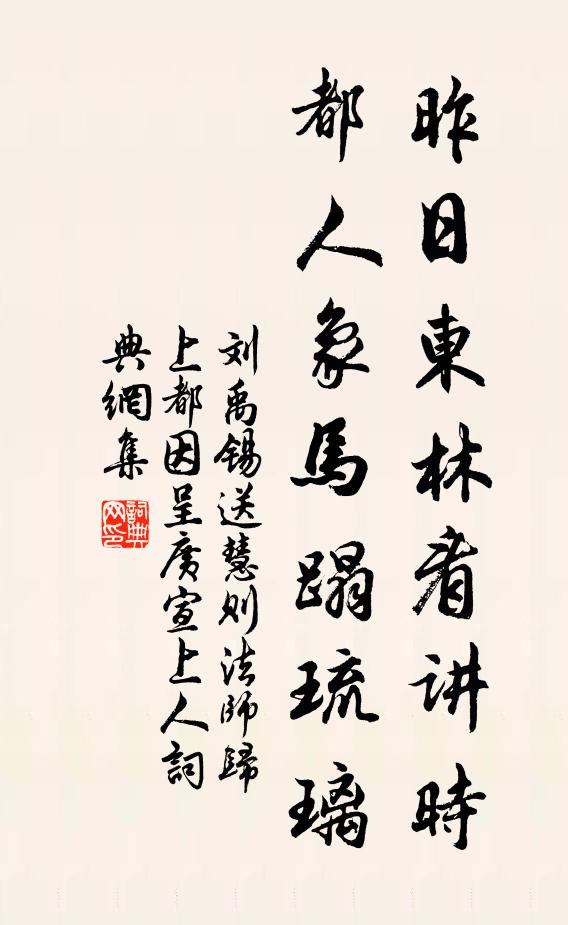 昨日東林看讲時
都人象馬蹋琉璃
刘禹锡送慧则法師歸
上都因呈廣宣上人詞
典網集
詞典网印